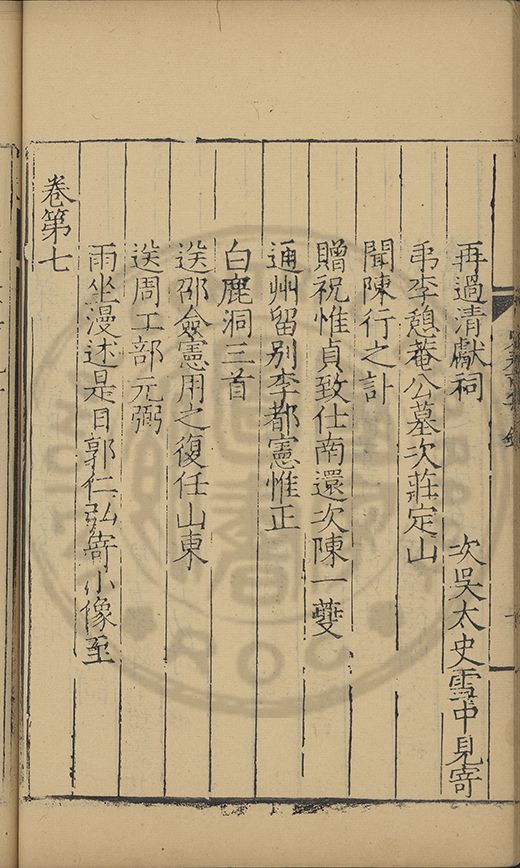 再過清獻祠　次吳太史雪中見寄
弔李憩菴公墓次莊定山
聞陳行之訃
贈祝惟貞致仕南還次陳一夔
通州留別李都憲惟正
白鹿洞三首
送邵僉憲用之復任山東
送周工部元弼
雨坐漫述是日郭仁弘寄小像至
卷第七